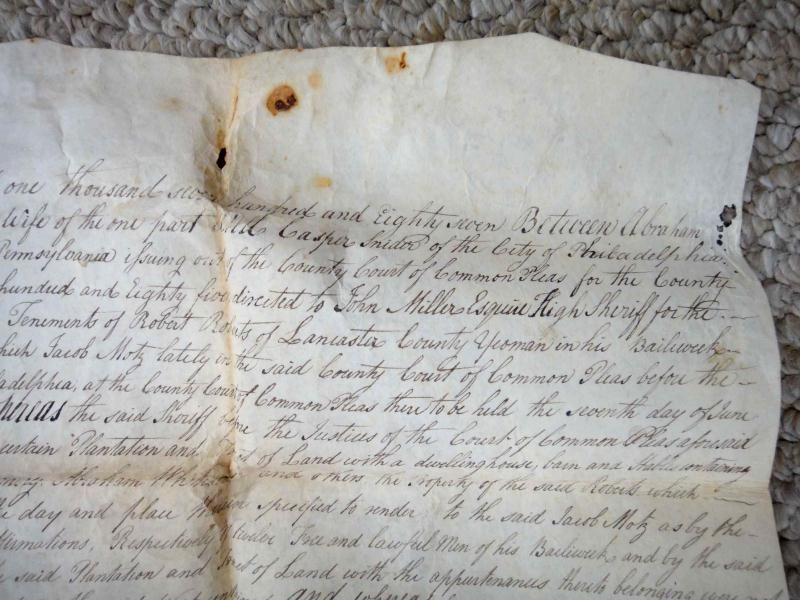 one thousand seven hundred and Eighty seven Between Abraham
Wife of the one part And Casper Snider of the City of Philadelphia
Pennsylvania issuing out of the County Court of Common Pleas for the County
hundred and Eighty five directed to John Miller Esquire High Sheriff for the
Tenements of Robert Roberts of Lancaster County Yeoman in his Bailiwick
Jacob Motz lately in the said County Court of Common Pleas before the
adelphia, at the County Court of Common Pleas there to be held the seventh day of June
hereas the said Sheriff the Justices of the Court of Common Pleas aforesaid
certain Plantation and of Land with a dwelling house, barn and Stable containing
Abraham and others the Property of the said Roberts which
day and place therein specified to render to the said Jacob Motz as by the
ffirmations, Respectively of twelve Free and lawful Men of his Bailiwick and by the said
said Plantation and Tract of Land with the appurtenances thereto belonging were not
and whereas